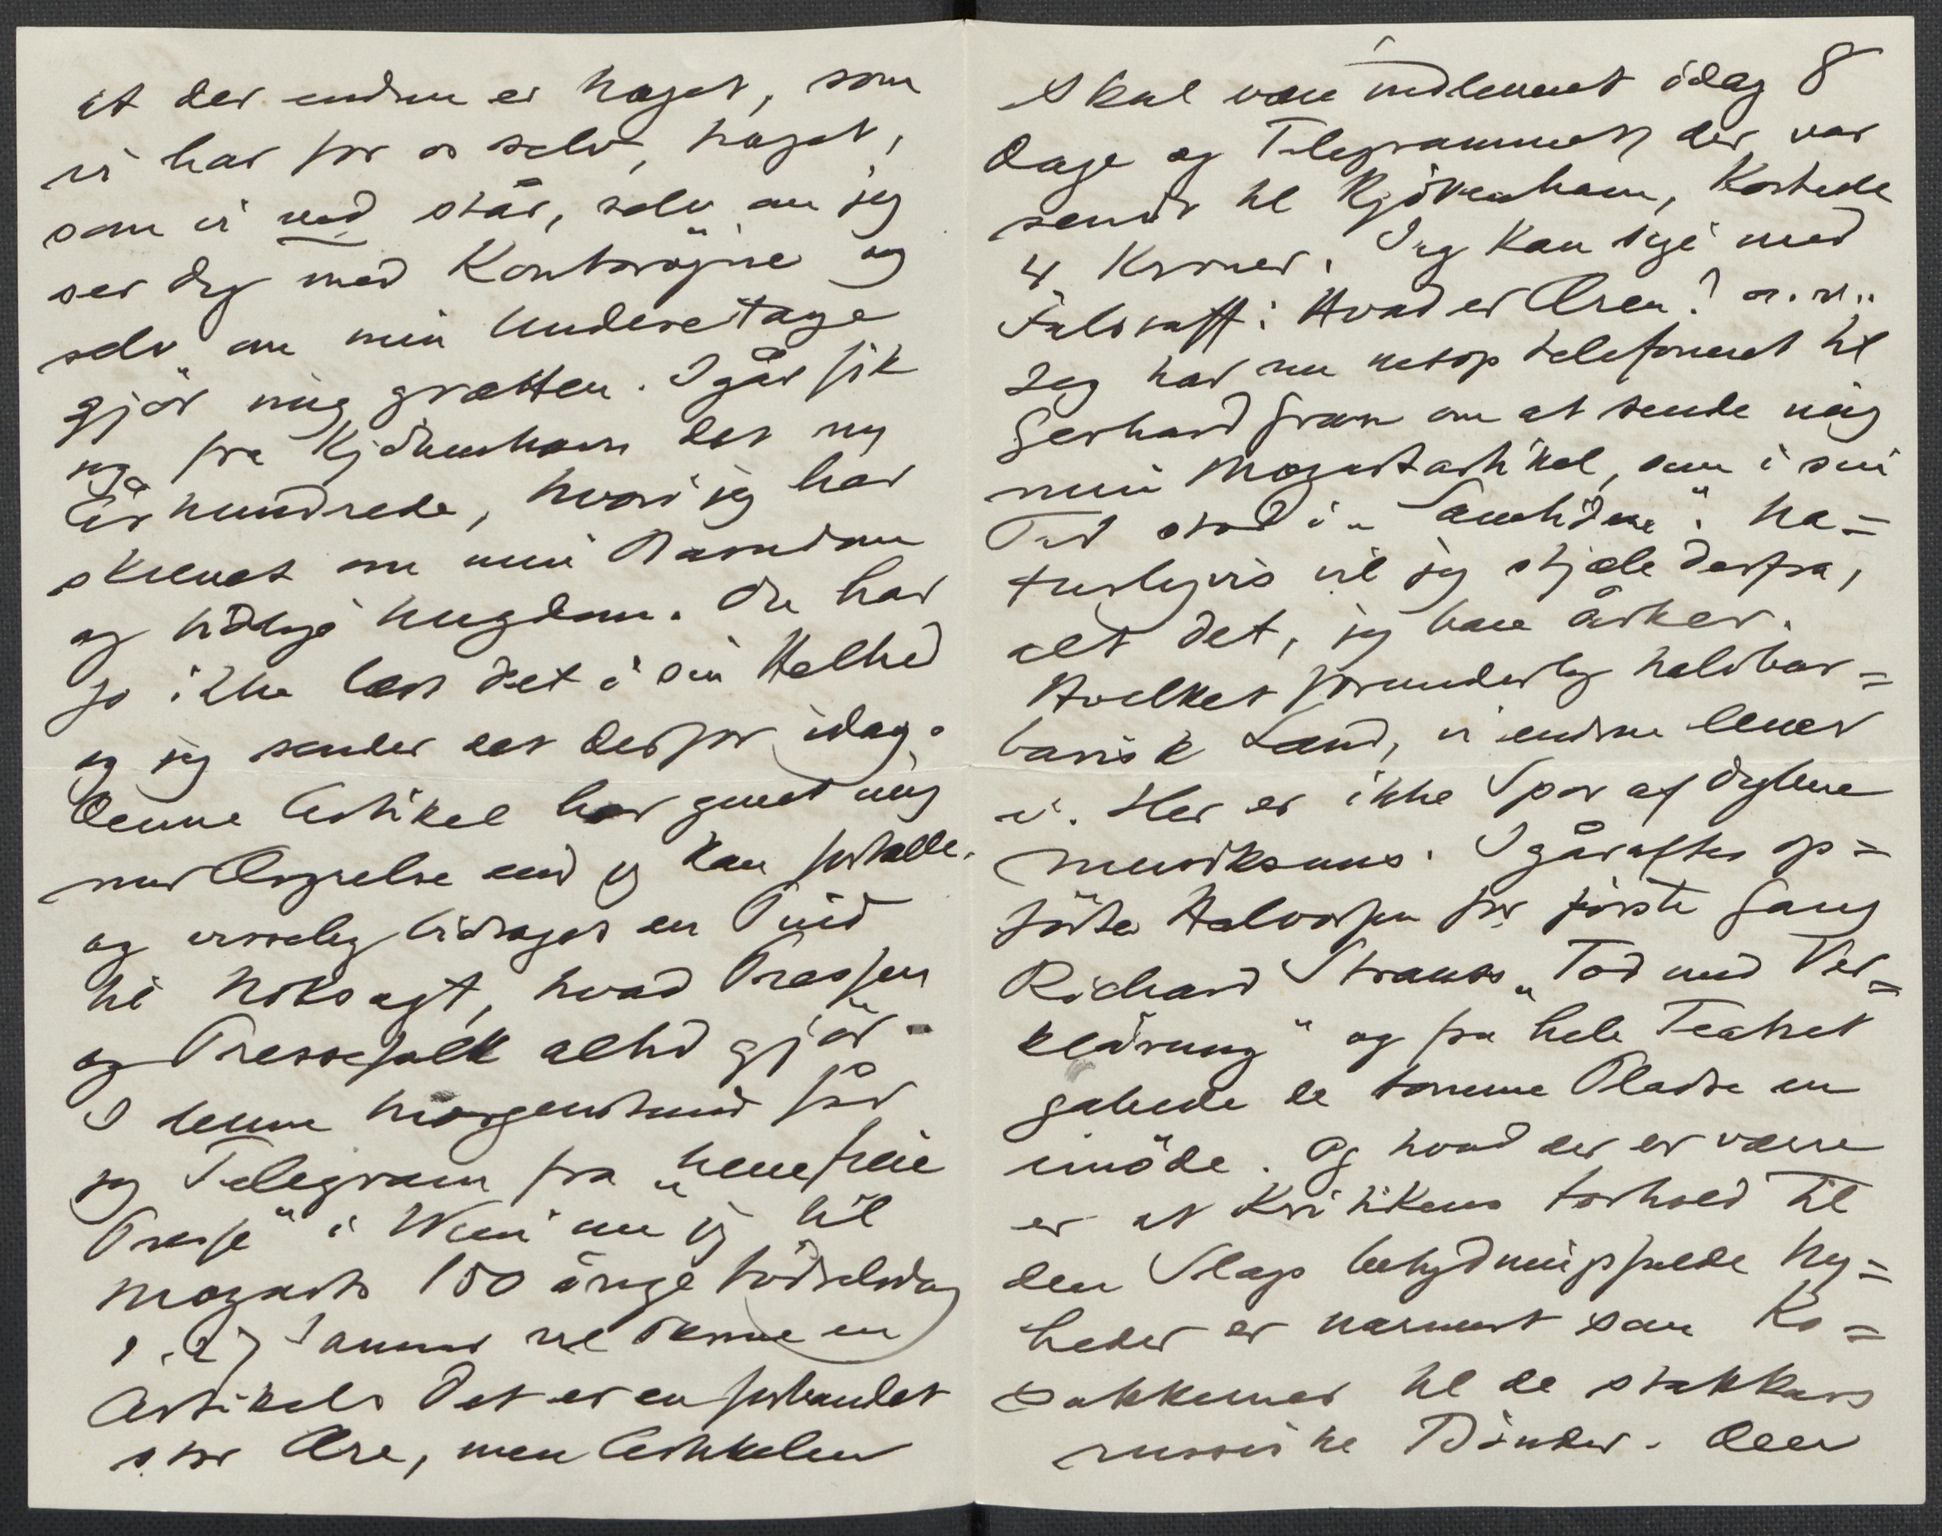 at der endnu er noget, som
vi har for os selv, noget,
som vi ved står, selv om jeg
ser dig med Kontorøjne og
selv om min Underetage
gjör mig grætten. Igår fik
jeg fra Kjöbenhavn det ny
Århundrede, hvori jeg har
skrevet om min Barndom
og tidlige Ungdom. Du har
jo ikke læst det i sin Helhed
og jeg sender det derfor idag.
Denne Artikel har givet mig
mer Ærgrelse end jeg kan fortælle.
og virkelig bidraget en Pind
til Noksagt, hvad Pressen
og Pressefolk altid gjör.
I denne Morgenstund får
jeg Telegram fra „Neue freie
Presse" i Wien om jeg til
Mozarts 150 årige Födselsdag
d. 27 Januar vil skrive en
Artikel. Det er en forbandet
stor Ære, men Artikelen
skal være indleveret idag 8
Dage og Telegrammet, der var
sendt til Kjöbenhavn, kostede
4 Kroner. Jeg kan sige med
Falstaff: Hvad er Ære? o.s.v.
Jeg har nu netop telefoneret til
Gerhard Gran om at sende mig
min Mozartartikel, som i sin
Tid stod i „Samtiden". Na=
turligvis vil jeg stjæle derfra,
alt det, jeg bare årker.
Hvilket forunderlig halvbar=
barisk Land, vi endnu lever
i. Her er ikke Spor af dybere
Musiksans. Igåraftes op=
förte Halvorsen for förste Gang
Richard Strauss „Tod und Ver=
klärung" og fra hele Teatret
gabede de tomme Pladse en
imöde. Og hvad der er værre
er at Kritikens Forhold til
den Slags betydningsfulde Ny=
heder er nærmest som Ko=
sakkernes til de stakkars
russiske Bönder. Den